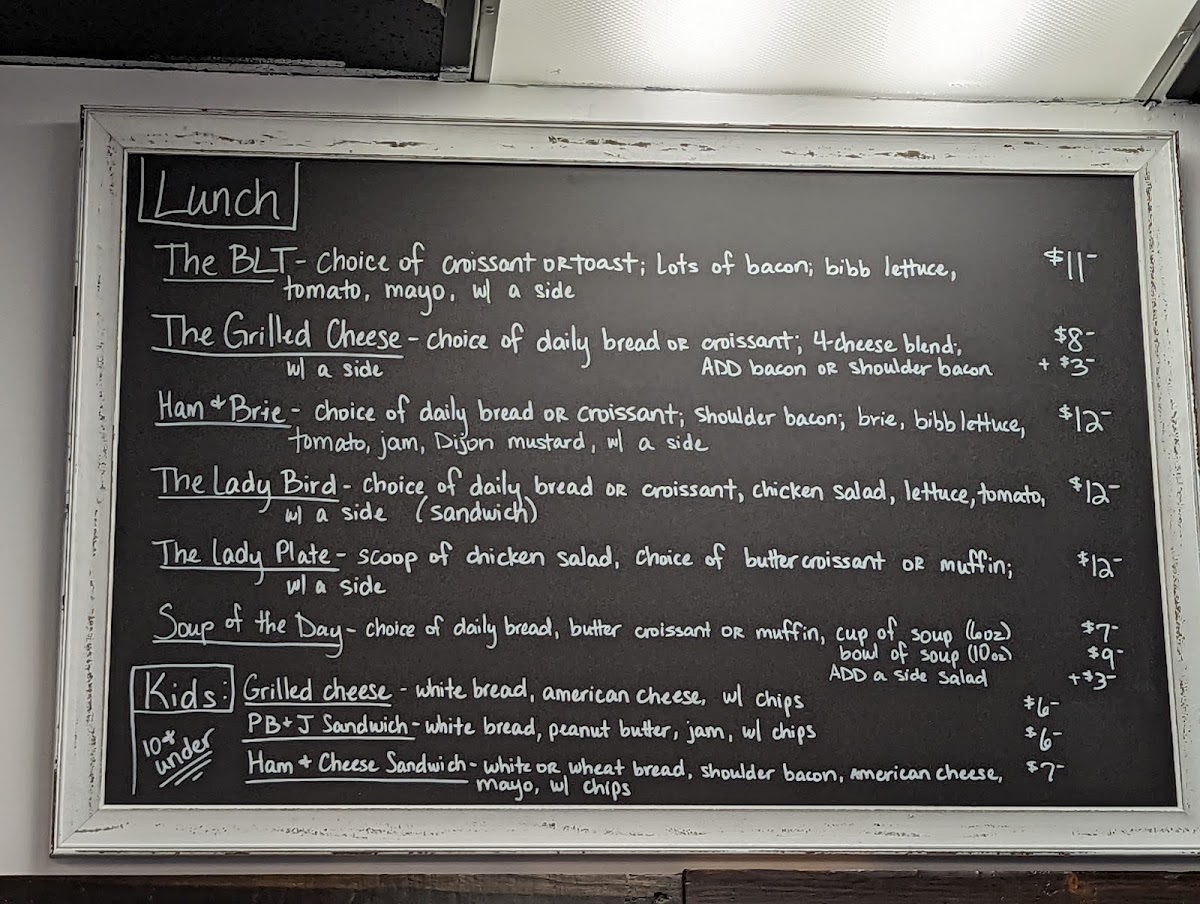 Lunch
The BLT - choice of croissant OR toast; Lots of bacon; bibb lettuce, $11-
tomato, mayo, w/ a side
The Grilled Cheese - choice of daily bread OR croissant; 4-cheese blend; $8-
w/ a side ADD bacon OR shoulder bacon + $3-
Ham + Brie - choice of daily bread OR croissant; shoulder bacon; brie, bibb lettuce, $12-
tomato, jam, Dijon mustard, w/ a side
The Lady Bird - choice of daily bread OR croissant, chicken salad, lettuce, tomato, $12-
w/ a side (sandwich)
The Lady Plate - scoop of chicken salad, choice of butter croissant OR muffin; $12-
w/ a side
Soup of the Day - choice of daily bread, butter croissant OR muffin, cup of soup (6oz) $7-
bowl of soup (10oz) $9-
ADD a side salad +$3-
Kids: Grilled cheese - white bread, american cheese, w/ chips $6-
10 + under
PB + J Sandwich - white bread, peanut butter, jam, w/ chips $6-
Ham + Cheese Sandwich - white OR wheat bread, shoulder bacon, American cheese, $7-
mayo, w/ chips